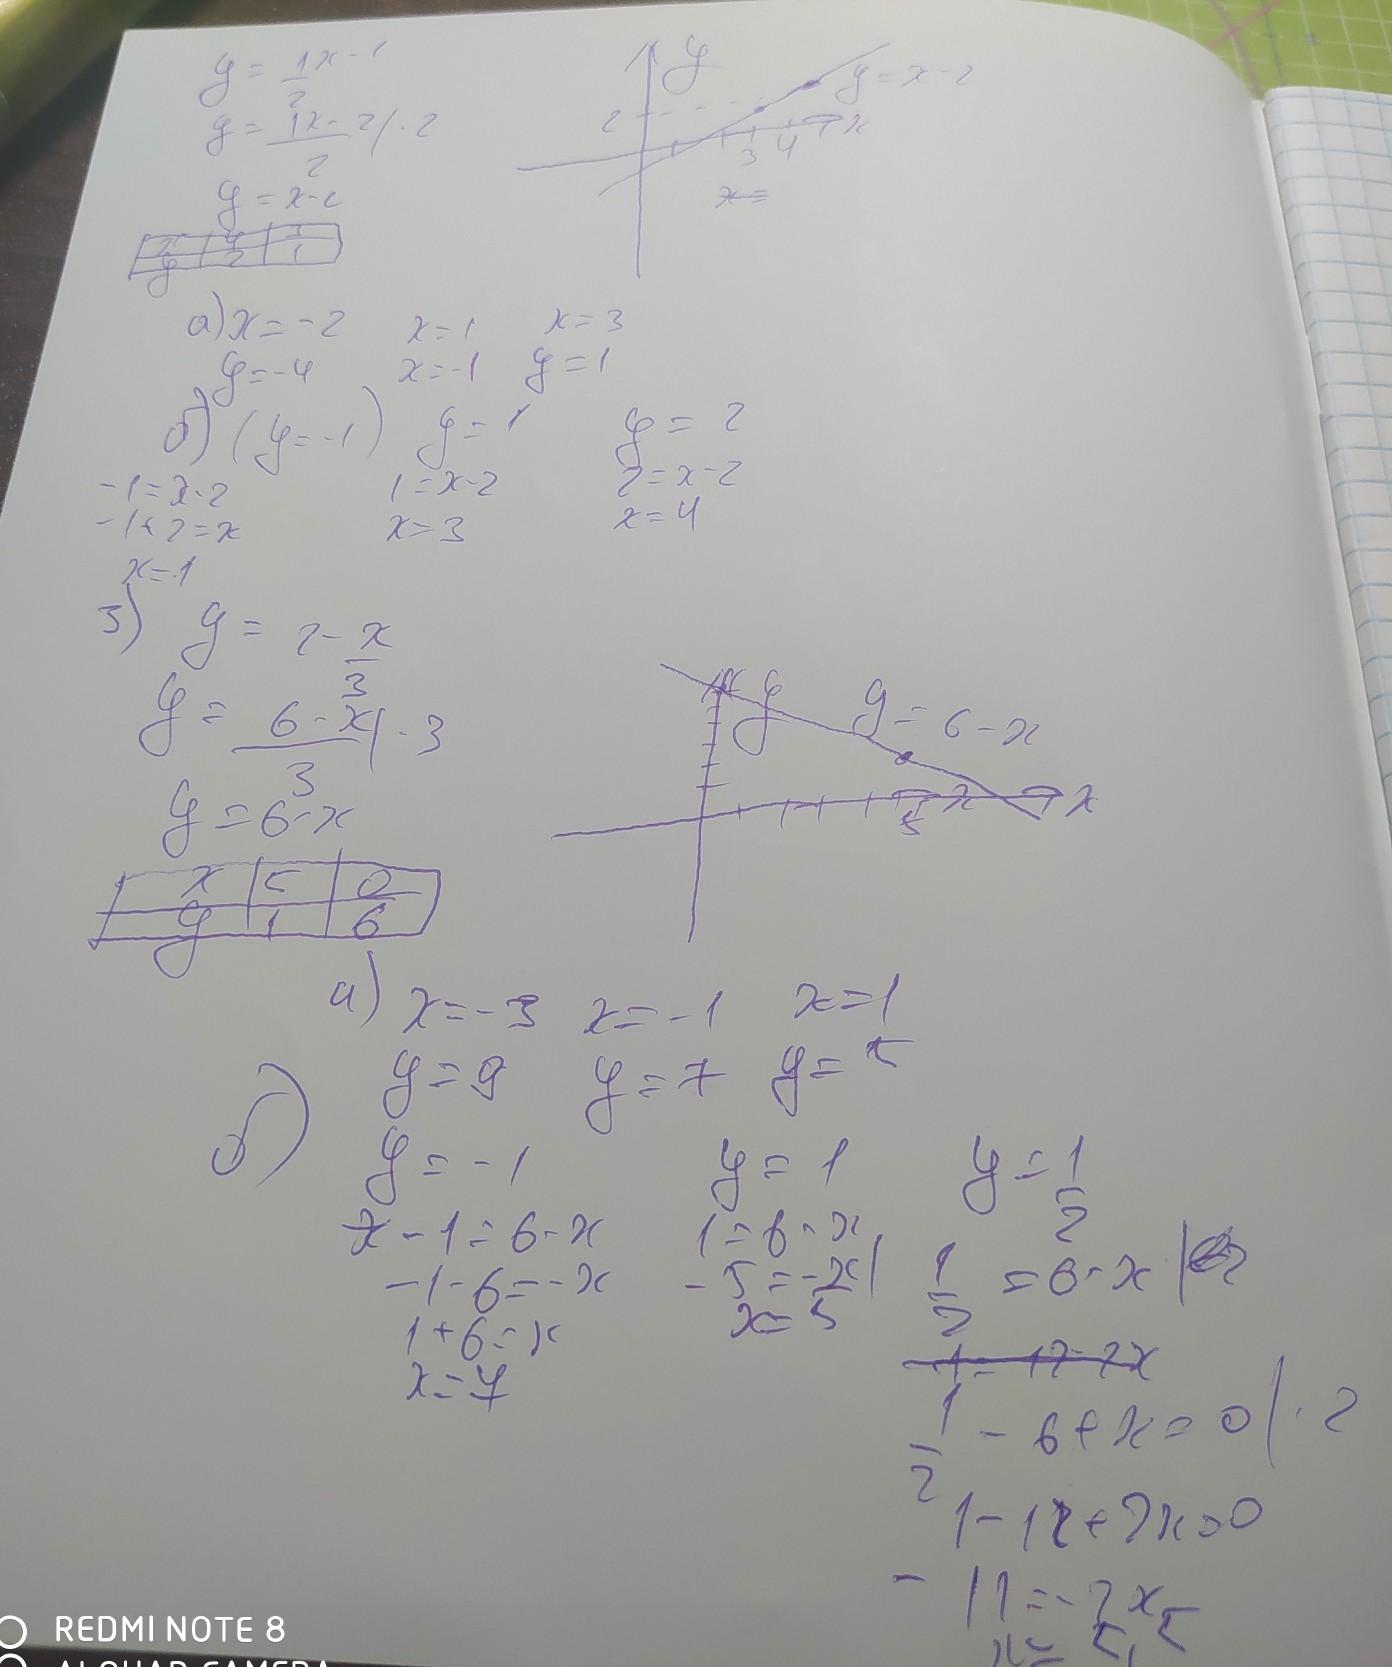 y = 1/2 x - 1
y = 1x - 2 / 2 | · 2
y = x - 2
x 4 3
y 2 1
y
y = x - 2
2
3 4 x
x =
а) x = -2 x = 1 x = 3
y = -4 x = -1 y = 1
б) (y = -1) y = 1 y = 2
-1 = x - 2 1 = x - 2 2 = x - 2
-1 + 2 = x x = 3 x = 4
x = 1
3) y = 2 - x/3
y = 6 - x / 3 | · 3
y = 6 - x
x 5 0
y 1 6
y
y = 6 - x
5 x x
а) x = -3 x = -1 x = 1
y = 9 y = 7 y = 5
б) y = -1 y = 1 y = 1/2
-1 = 6 - x 1 = 6 - x 1/2 = 6 - x |
-1 - 6 = -x -5 = -x |
1 + 6 = x x = 5
1 = 12 - 2x
x = 7
1/2 - 6 + x = 0 | · 2
1 - 12 + 2x = 0
-11 = -2x
x = 5,5
REDMI NOTE 8
AI QUAD CAMERA